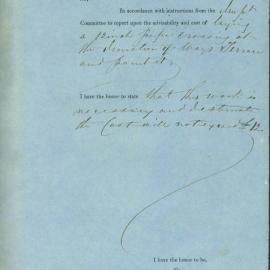 In accordance with instructions from the
Committee to report upon the advisability and cost of laying
a 12 inch pipe crossing at
the junction of Ways Terrace
and
I have the honor to state that this work is
necessary and estimate
the Cost will not exceed £12
I have the honor to be,